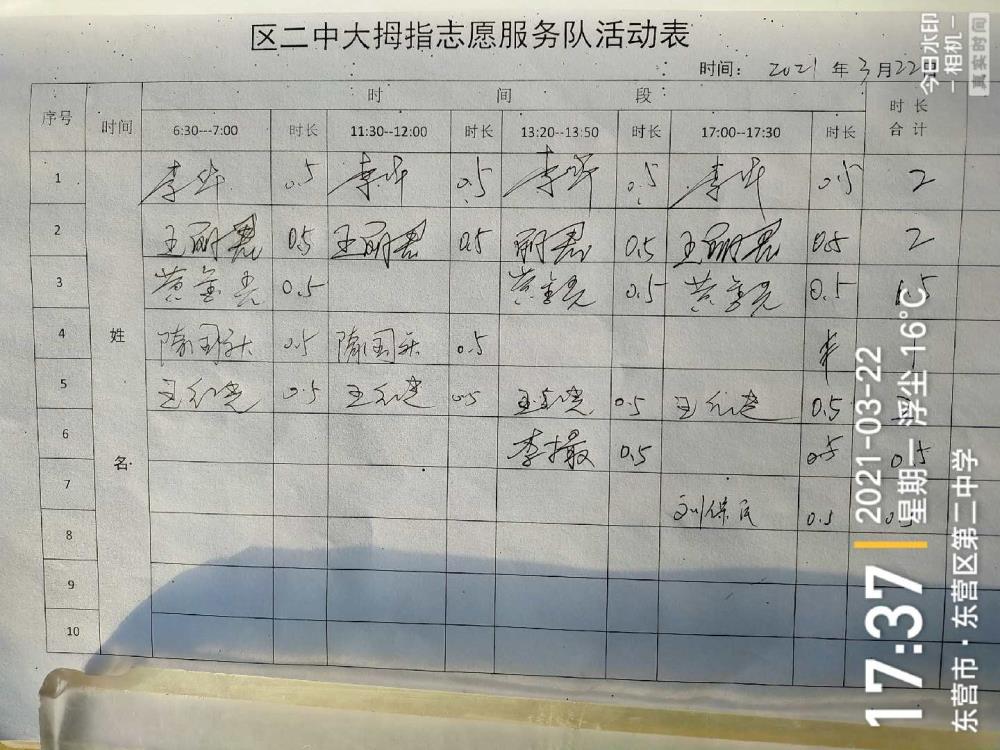 区二中大拇指志愿服务队活动表
时间： 2021 年 3 月 22
序号 时间 时 间 段 时 长 合 计
6:30---7:00 时长 11:30--12:00 时长 13:20--13:50 时长 17:00--17:30 时长
1 李华 0.5 李华 0.5 李华 0.5 李华 0.5 2
2 王丽君 0.5 王丽君 0.5 丽君 0.5 王丽君 0.5 2
3 0.5 0.5 0.5 1.5
4 姓 0.5 0.5
5 0.5 0.5 0.5 0.5
6 名 0.5 0.5 0.5
7 刘保民 0.5
8
9
10
今日水印
相机
真实时间
17:37
2021-03-22
星期一 浮尘 16°C
东营市·东营区第二中学